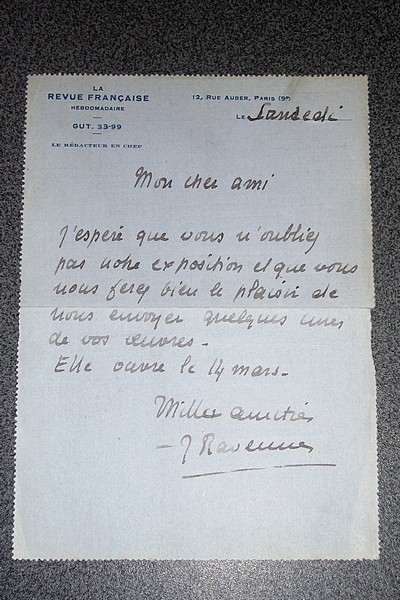 LA
REVUE FRANÇAISE
HEBDOMADAIRE
GUT. 33-99
LE RÉDACTEUR EN CHEF
12, RUE AUBER, PARIS (9e)
LE Samedi
Mon cher ami
J'espère que vous n'oubliez
pas notre exposition et que vous
nous ferez bien le plaisir de
nous envoyer quelques unes
de vos œuvres.
Elle ouvre le 14 mars.
Milles amitiés
J Ravennes